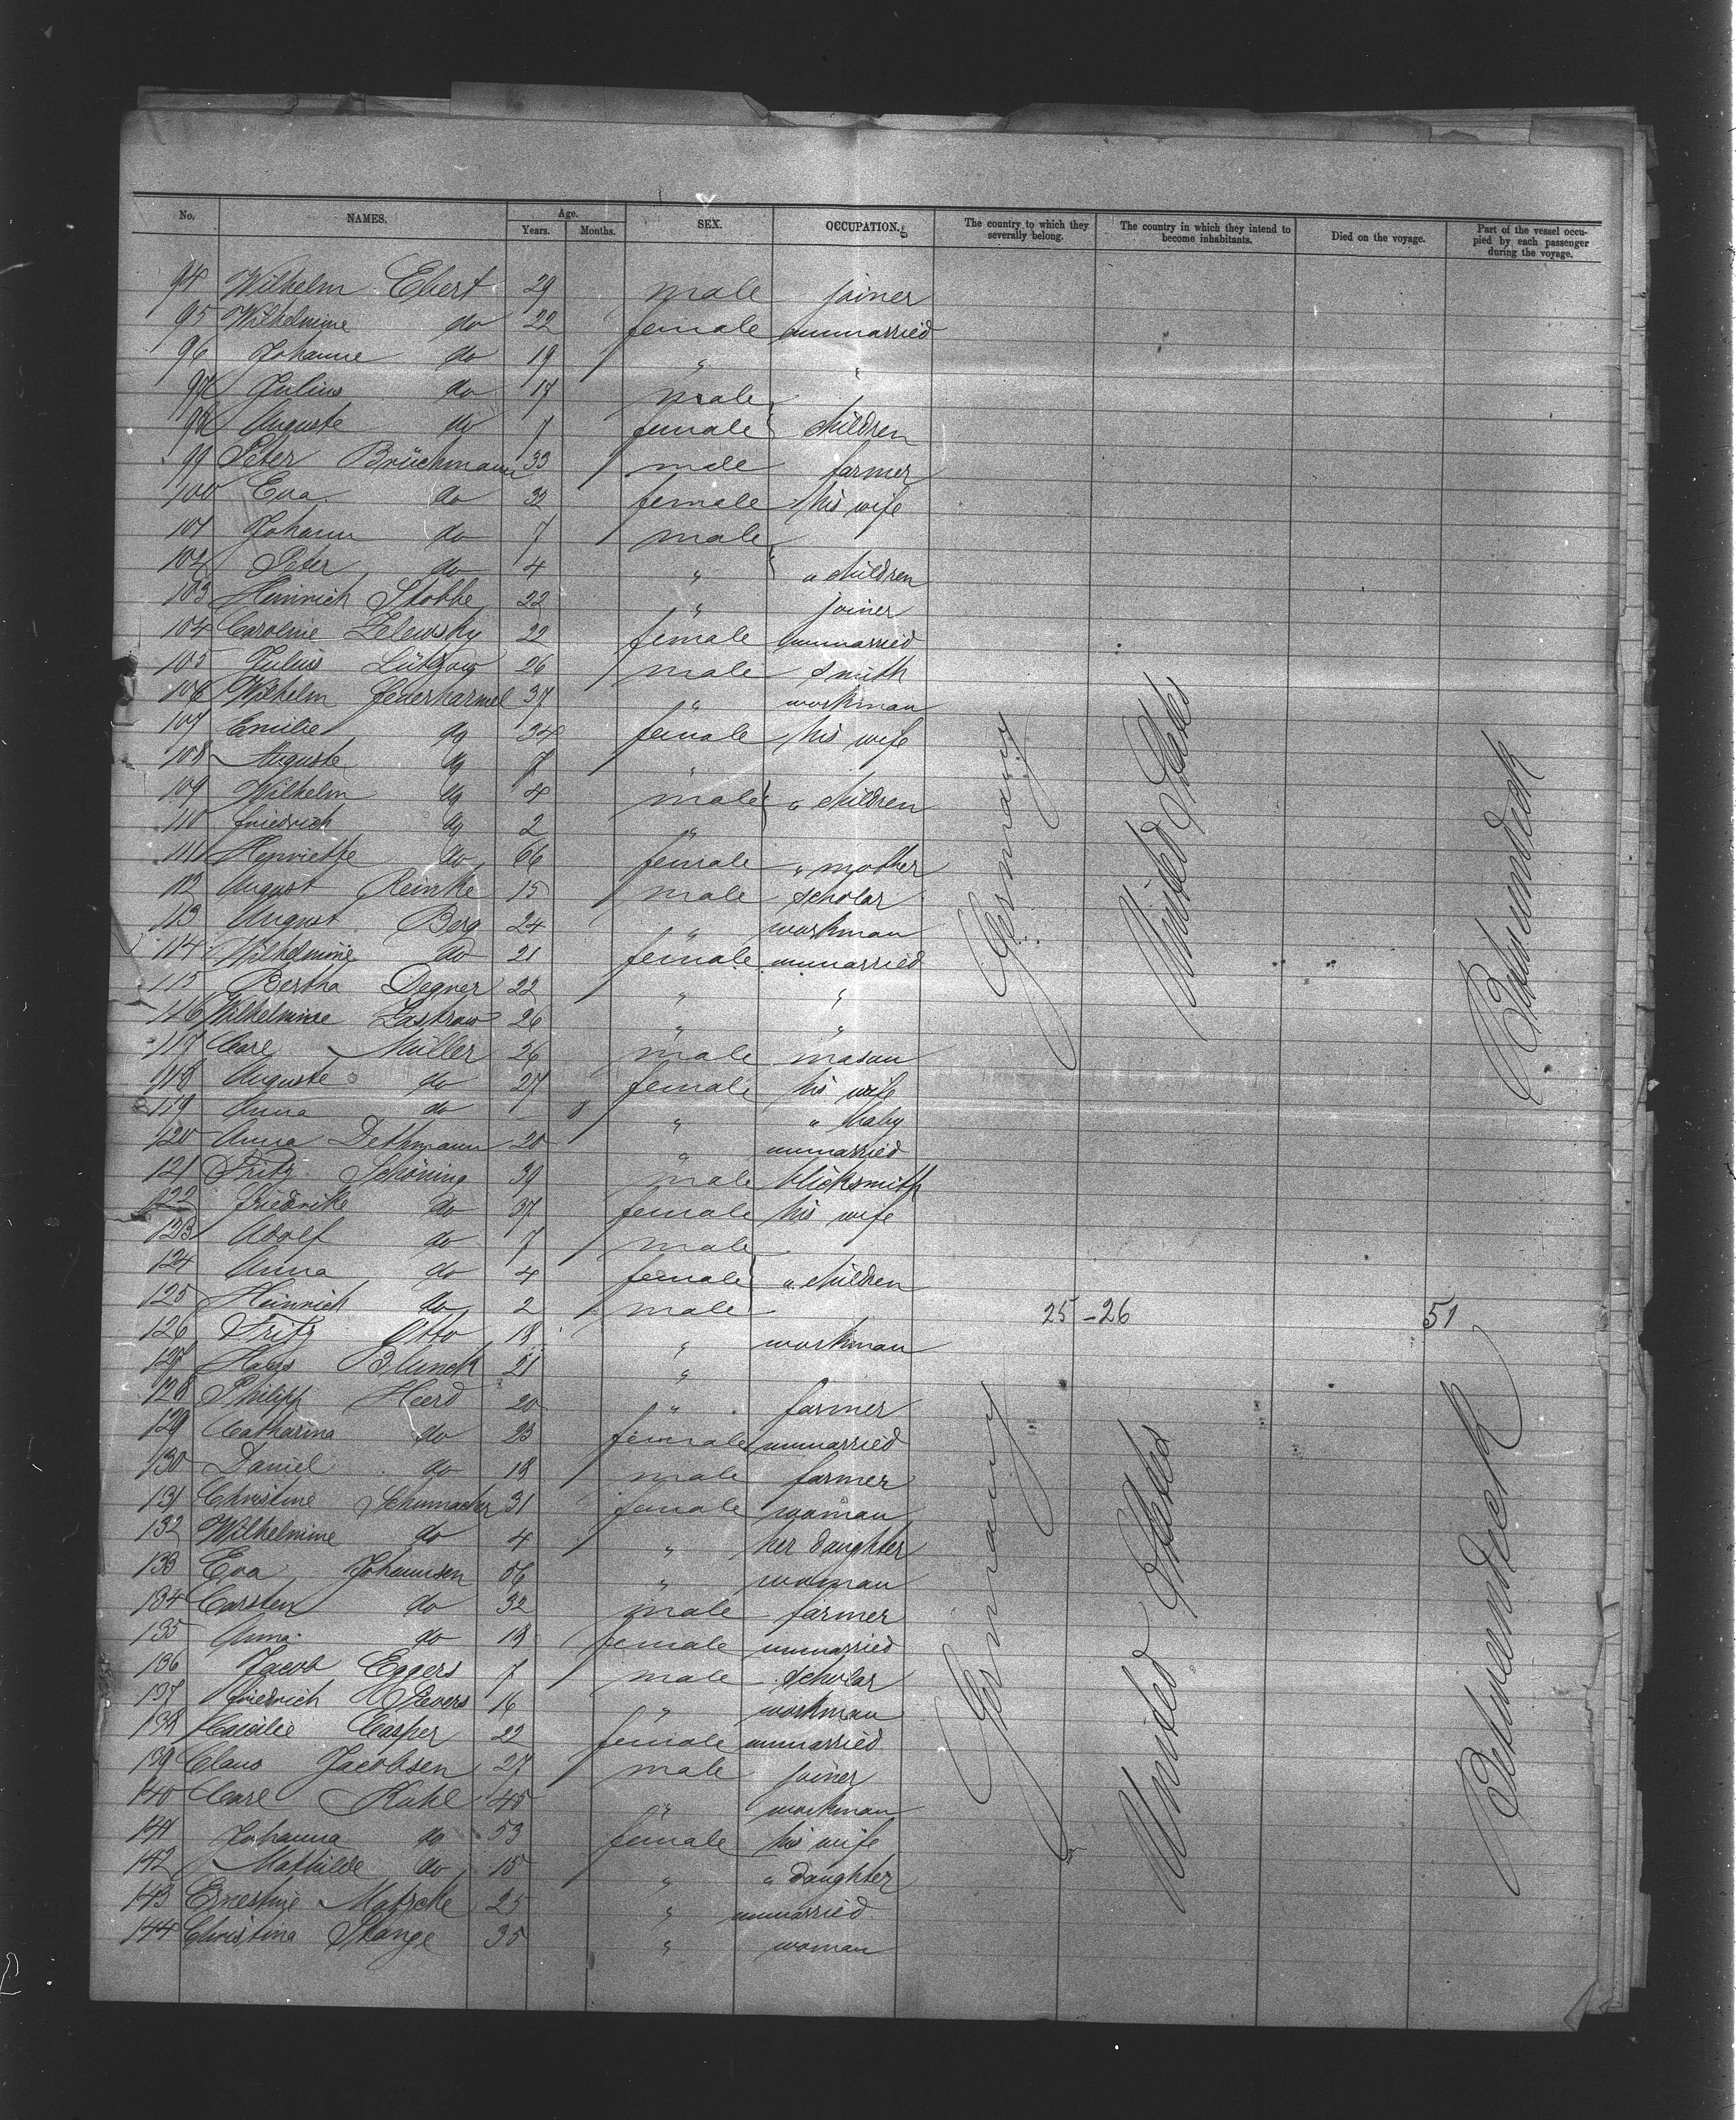 No. NAMES. Age. Years. Months. SEX. OCCUPATION. The country to which they severally belong. The country in which they intend to become inhabitants. Died on the voyage. Part of the vessel occupied by each passenger during the voyage.
94 Wilhelm Ebert 29 male joiner
95 Wilhelmine do 22 female unmarried
96 Johanne do 19 " "
97 Julius do 17 male
98 Auguste do 7 female } children
99 Peter Brüchmann 33 male farmer
100 Eva do 32 female his wife
101 Johann do 7 male
102 Peter do 4 " } " children
103 Heinrich Stobbe 22 " joiner
104 Caroline Zelewsky 22 female unmarried
105 Julius Lützow 26 male smith
106 Wilhelm Federharmel 37 " workman
107 Emilie do 34 female his wife
108 Auguste do 7 "
109 Wilhelm do 4 male } " children
110 Friedrich do 2 "
111 Henriette do 66 female " mother
112 August Reinke 15 male scholar
113 August Berg 24 " workman
114 Wilhelmine do 21 female unmarried
115 Bertha Degner 22 " "
116 Wilhelmine Lastrow 26 " "
117 Carl Müller 26 male mason
118 Auguste do 27 female his wife
119 Anna do " " baby
120 Anna Dethmann 20 " unmarried
121 Fritz Schöning 39 male blicksmith
122 Friedrike do 37 female his wife
123 Adolf do 7 male
124 Anna do 4 female } " children
125 Heinrich do 2 male
25-26 51
126 Fritz Otto 18 " workman
127 Hans Blunck 21 "
128 Philipp Heerd 20 " farmer
129 Catharina do 23 female unmarried
130 Daniel do 18 male farmer
131 Christine Schumacher 31 female woman
132 Wilhelmine do 4 " her daughter
133 Eva Johannsen 56 " woman
134 Carsten do 32 male farmer
135 Anna do 18 female unmarried
136 Jacob Eggers 7 male scholar
137 Friedrich Sievers 16 " workman
138 Caecilie Casper 22 female unmarried
139 Claus Jacobsen 27 male joiner
140 Carl Kahl 45 " workman
141 Johanna do 53 female his wife
142 Mathilde do 15 " " daughter
143 Ernestine Matzcke 25 " unmarried
144 Christina Stange 35 " woman
Germany
United States
Betweendeck
Germany
United States
Betweendeck